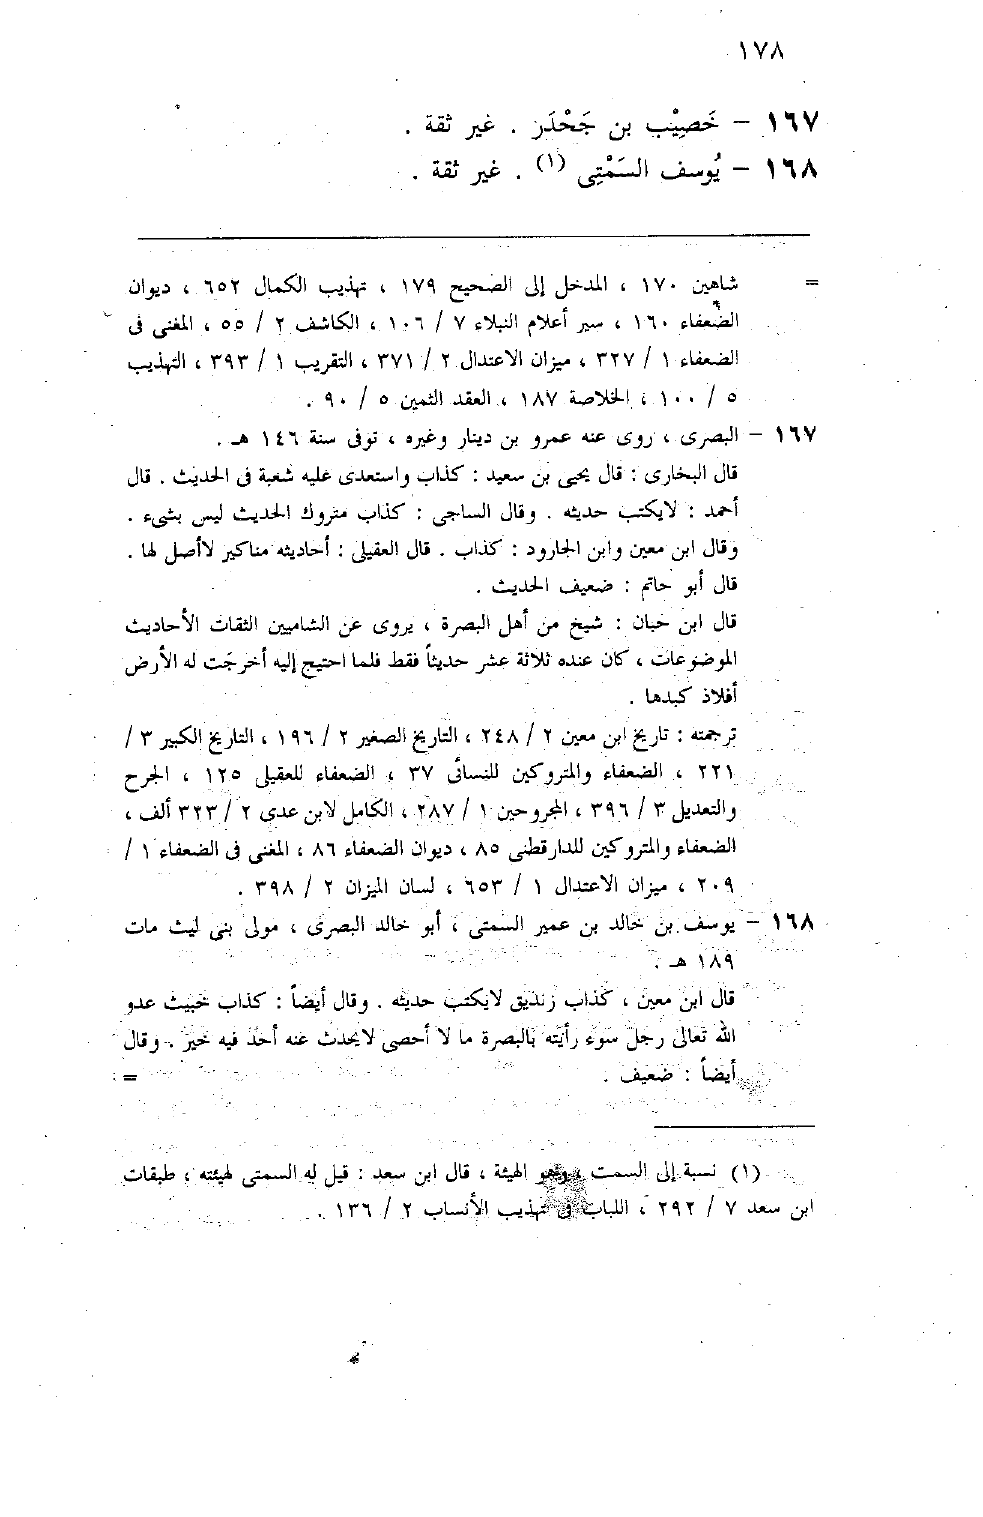 ١٧٨
١٦٧ – خَصِيْب بن جَحْدَر . غير ثقة .
١٦٨ – يُوسف السَمْتِى (١) . غير ثقة .
= شاهين ١٧٠ ، المدخل إلى الصحيح ١٧٩ ، تهذيب الكمال ٦٥٢ ، ديوان
الضعفاء ١٦٠ ، سير أعلام النبلاء ٧ / ١٠٦ ، الكاشف ٢ / ٥٥ ، المغنى فى
الضعفاء ١ / ٣٢٧ ، ميزان الاعتدال ٢ / ٣٧١ ، التقريب ١ / ٣٩٣ ، التهذيب
٥ / ١٠٠ ، الخلاصة ١٨٧ ، العقد الثمين ٥ / ٩٠ .
١٦٧ – البصرى ، روى عنه عمرو بن دينار وغيره ، توفى سنة ١٤٦ هـ .
قال البخارى : قال يحيى بن سعيد : كذاب واستعدى عليه شعبة فى الحديث . قال
أحمد : لايكتب حديثه . وقال الساجى : كذاب متروك الحديث ليس بشىء .
وقال ابن معين وابن الجارود : كذاب . قال العقيلى : أحاديثه مناكير لاأصل لها .
قال أبو حاتم : ضعيف الحديث .
قال ابن حبان : شيخ من أهل البصرة ، يروى عن الشاميين الثقات الأحاديث
الموضوعات ، كان عنده ثلاثة عشر حديثاً فقط فلما احتيج إليه أخرجَت له الأرض
أفلاذ كبدها .
ترجمته : تاريخ ابن معين ٢ / ٢٤٨ ، التاريخ الصغير ٢ / ١٩٦ ، التاريخ الكبير ٣ /
٢٢١ ، الضعفاء والمتروكين للنسائى ٣٧ ، الضعفاء للعقيلى ١٢٥ ، الجرح
والتعديل ٣ / ٣٩٦ ، المجروحين ١ / ٢٨٧ ، الكامل لابن عدى ٢ / ٣٢٣ ألف ،
الضعفاء والمتروكين للدارقطنى ٨٥ ، ديوان الضعفاء ٨٦ ، المغنى فى الضعفاء ١ /
٢٠٩ ، ميزان الاعتدال ١ / ٦٥٣ ، لسان الميزان ٢ / ٣٩٨ .
١٦٨ – يوسف بن خالد بن عمير السمتى ، أبو خالد البصرى ، مولى بنى ليث مات
١٨٩ هـ .
قال ابن معين ، كذاب زنديق لايكتب حديثه . وقال أيضاً : كذاب خبيث عدو
الله تعالى رجل سوء رأيته بالبصرة ما لا أحصى لايحدث عنه أحد فيه خير . وقال
أيضاً : ضعيف . =
(١) نسبة إلى السمت وهو الهيئة ، قال ابن سعد : قيل له السمتى لهيئته ، طبقات
ابن سعد ٧ / ٢٩٢ ، اللباب فى تهذيب الأنساب ٢ / ١٣٦ .